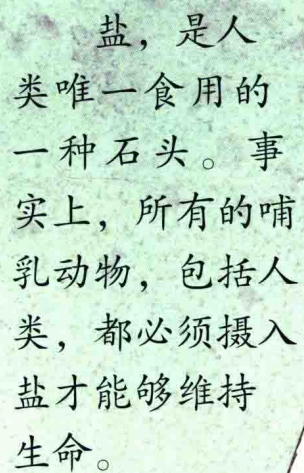 盐，是人
类唯一食用的
一种石头。事
实上，所有的哺
乳动物，包括人
类，都必须摄入
盐才能够维持
生命。